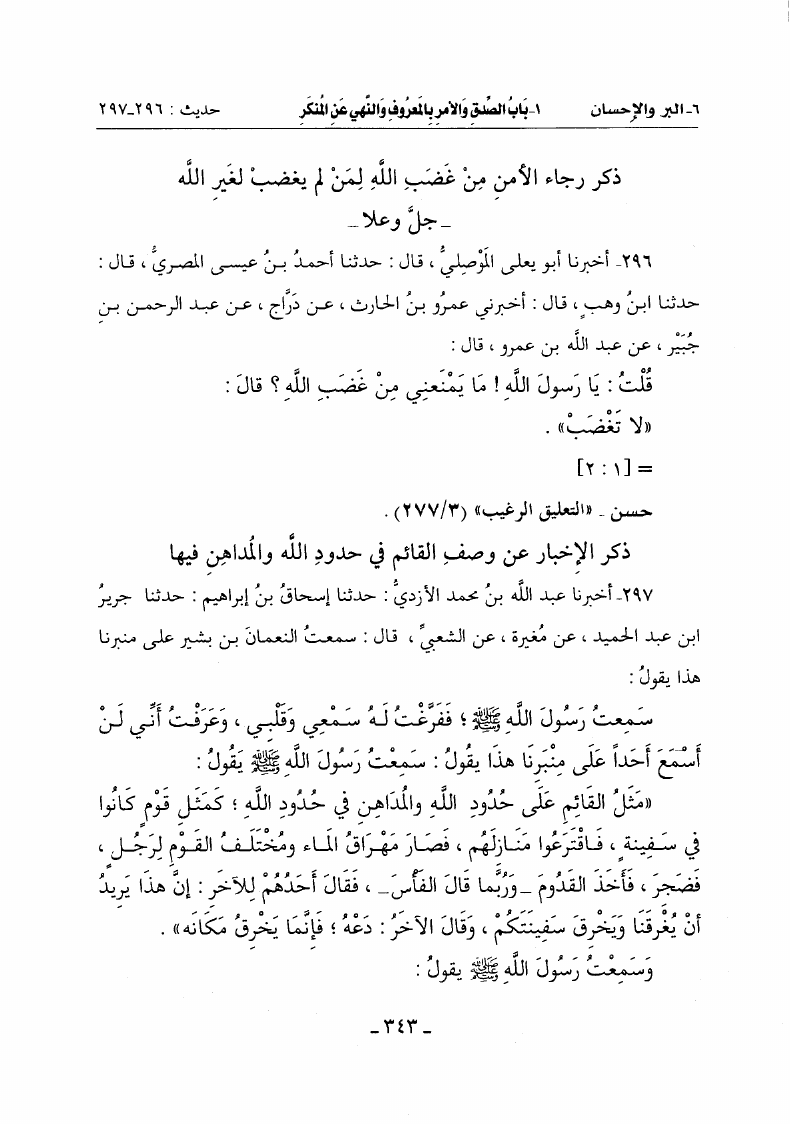 ٦- البر والإحسان ١- بَابُ الصِّدْقِ وَالأَمرِ بِالمَعرُوفِ وَالنَّهي عَنِ المُنكَرِ حديث : ٢٩٦-٢٩٧
ذكر رجاء الأمنِ مِنْ غَضَبِ اللَّهِ لِمَنْ لم يغضبْ لغَيرِ اللَّه
- جلَّ وعلا -
٢٩٦- أخبرنا أبو يعلى المَوْصِليُّ ، قال : حدثنا أحمدُ بنُ عيسى المصريُّ ، قال :
حدثنا ابنُ وهبٍ ، قال : أخبرني عمرُو بنُ الحارث ، عن درَّاج ، عن عبد الرحمن بن
جُبَيْرٍ ، عن عبد الله بن عمرو ، قال :
قُلْتُ : يَا رَسولَ اللَّهِ ! مَا يَمْنَعنِي مِنْ غَضَبِ اللَّهِ ؟ قالَ :
«لا تَغْضَبْ» .
= [١ : ٢]
حسن - «التعليق الرغيب» (٣/٢٧٧) .
ذكر الإخبار عن وصفِ القائم في حدودِ اللَّه والمُداهِنِ فيها
٢٩٧- أخبرنا عبد الله بنُ محمد الأزديُّ : حدثنا إسحاقُ بنُ إبراهيم : حدثنا جريرُ
ابن عبد الحميد ، عن مُغيرة ، عن الشعبيِّ ، قال : سمعتُ النعمانَ بن بشير على منبرنا
هذا يقولُ :
سَمِعتُ رَسُولَ اللَّهِ ﷺ ؛ فَفَرَّغْتُ لَهُ سَمْعِي وَقَلْبِي ، وَعَرَفْتُ أَنِّي لَنْ
أَسْمَعَ أَحَداً عَلَى مِنْبَرِنا هذا يقُولُ : سَمِعْتُ رَسُولَ اللَّهِ ﷺ يَقُولُ :
«مَثَلُ القَائِمِ عَلَى حُدُودِ اللَّهِ والمُدَاهِنِ فِي حُدُودِ اللَّهِ ؛ كَمَثَلِ قَوْمٍ كَانُوا
فِي سَفِينةٍ ، فَاقْتَرَعُوا مَنَازِلَهُم ، فَصَارَ مَهْرَاقُ المَاءِ ومُخْتَلَفُ القَوْمِ لِرَجُلٍ ،
فَضَجِرَ ، فَأَخَذَ القَدُومَ - وَرُبَّما قَالَ الفَأْسَ - ، فَقَالَ أَحَدُهُمْ لِلآخَرِ : إِنَّ هذَا يَرِيدُ
أَنْ يُغْرِقَنَا وَيَخْرِقَ سَفِينَتَكُمْ ، وَقَالَ الآخَرُ : دَعْهُ ؛ فَإِنَّمَا يَخْرِقُ مَكَانَه» .
وَسَمِعْتُ رسُولَ اللَّهِ ﷺ يقولُ :
- ٣٤٣ -